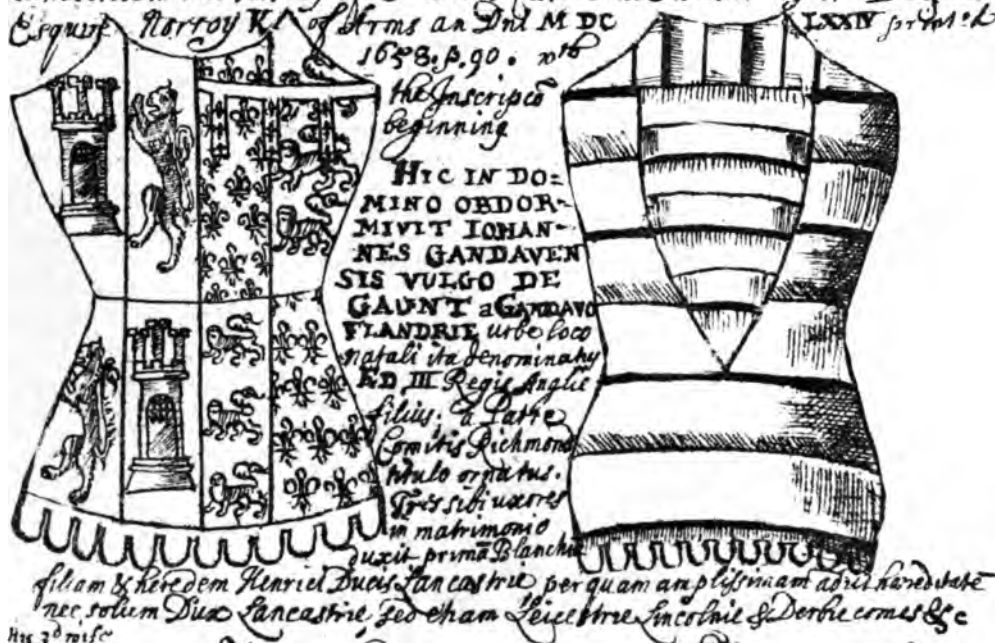 Esquire Norroy K. of Arms an Dni M DC LXXIV printed
1658. p. 90. wth
the Inscripcō
beginning
HIC IN DO=
MINO OBDOR-
MIVIT IOHAN-
NES GANDAVEN
SIS VULGO DE
GAUNT a GANDAVO
FLANDRIE urbe loco
natali ita denominatus
ED III Regis Anglie
filius; a Patre
Comitis Richmond
titulo ornatus.
Tres sibi uxores
in matrimonio
duxit primā Blanchā
filiam & heredem Henrici Ducis Lancastrie per quam amplissimam adiit hæreditatē
nec solum Dux Lancastrie, sed etiam Leicestrie Lincolnie & Derbie comes &c